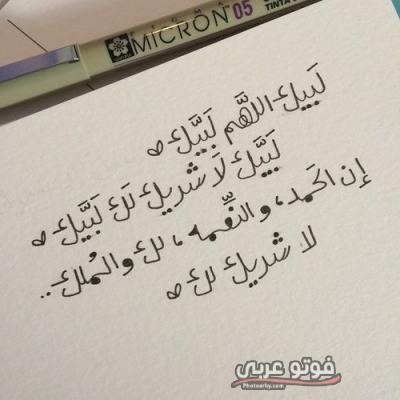 MICRON 05
لَبَيك اللهَّم لَبَيَّك
لَبَيَّك لَا شريك لَك لَبَيَّك
إن الحَمد، والنِّعمه، لك والمُلك..
لا شريك لك
فوتو عربي
Photoarby.com